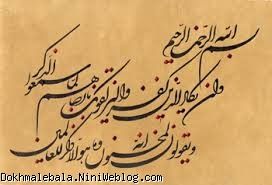 بسم الله الرحمن الرحیم
وان یکاد الذین کفروا لیزلقونک بابصارهم لما سمعوا الذکر
ویقولون انه لمجنون وما هو الا ذکر للعالمین
Dokhmalebala.NiniWeblog.com